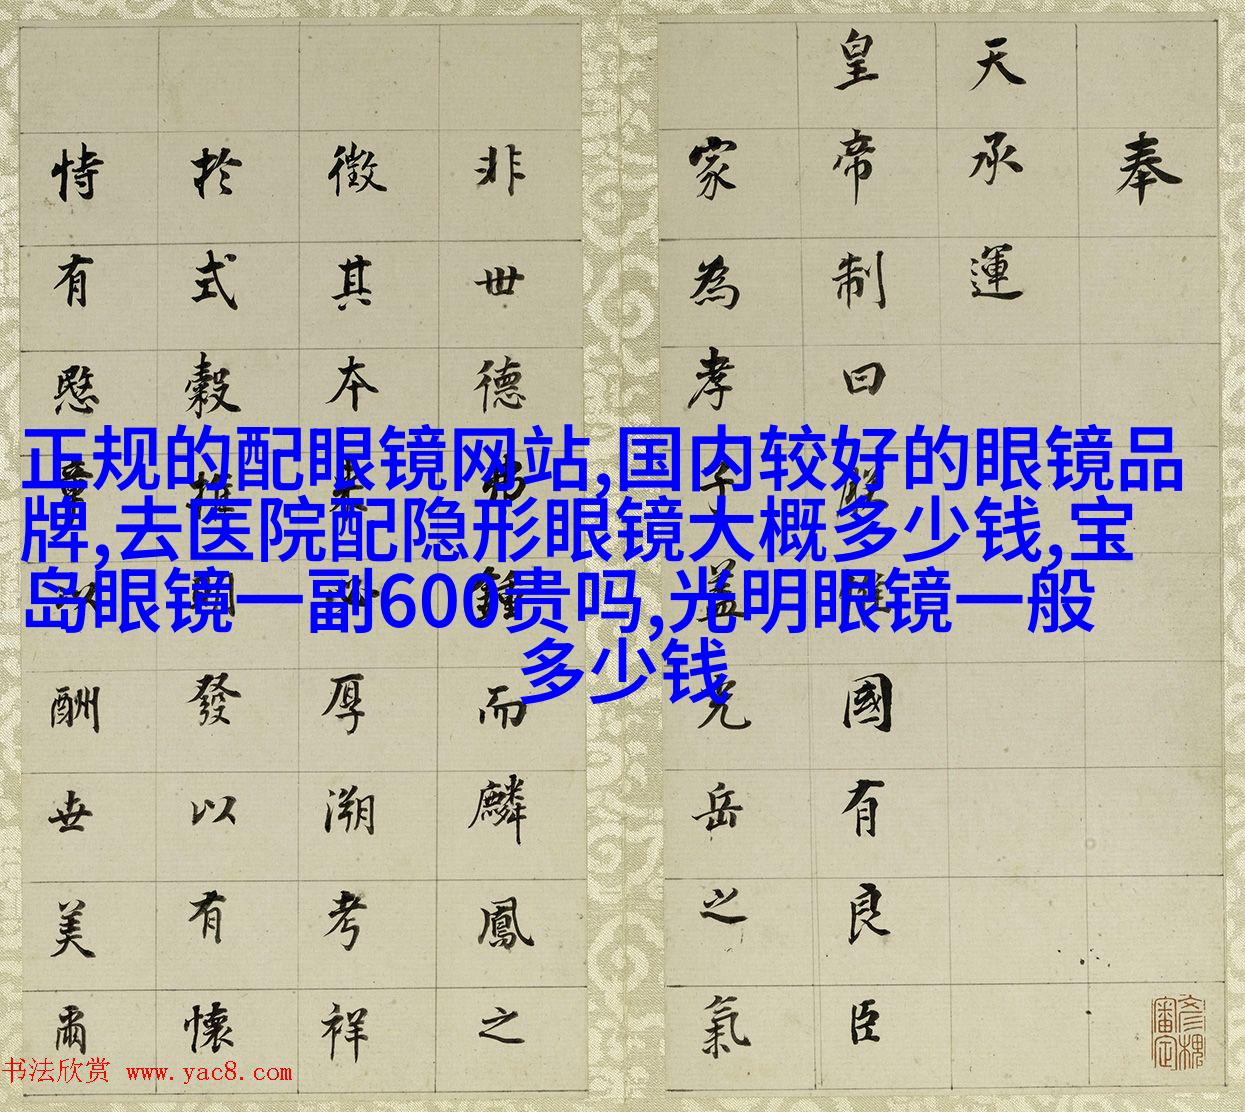 奉
天承運
皇帝制曰朕惟國有良臣
家為孝子蓋光岳之氣
非世德弗鍾而麟鳳之
徵其本來必厚溯考祥
於式穀推發以有懷
恃有愍以酬世美爾
正规的配眼镜网站,国内较好的眼镜品
牌,去医院配隐形眼镜大概多少钱,宝
岛眼镜一副600贵吗,光明眼镜一般
多少钱
彥槐審定
书法欣赏 www.yac8.com